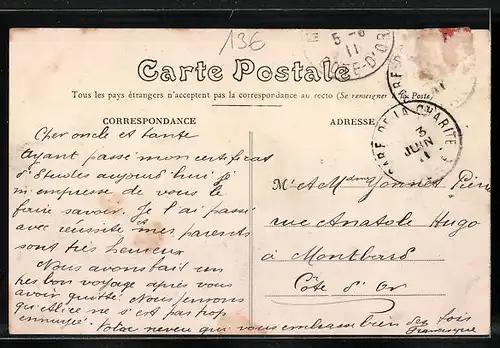 136
5-6
11
CÔTE-D'OR
Carte Postale
Tous les pays étrangers n'acceptent pas la correspondance au recto (Se renseigner à la Poste)
CORRESPONDANCE
ADRESSE
GARE DE LA CHARITÉ
3
JUIN
11
Cher oncle et tante
Ayant passé mon certificat
d'Etudes aujourd'hui je
m'empresse de vous le
faire savoir. Je l'ai passé
avec réussite mes parents
sont très heureux
Nous avons fait un
très bon voyage après vous
avoir quitté. Nous pensons
qu'Alice ne s'est pas trop
ennuyée.
Votre neveu qui vous embrasse bien des fois
M. et Mdme Yonnet Pierre
rue Anatole Hugo
à Montbard
Côte d'Or